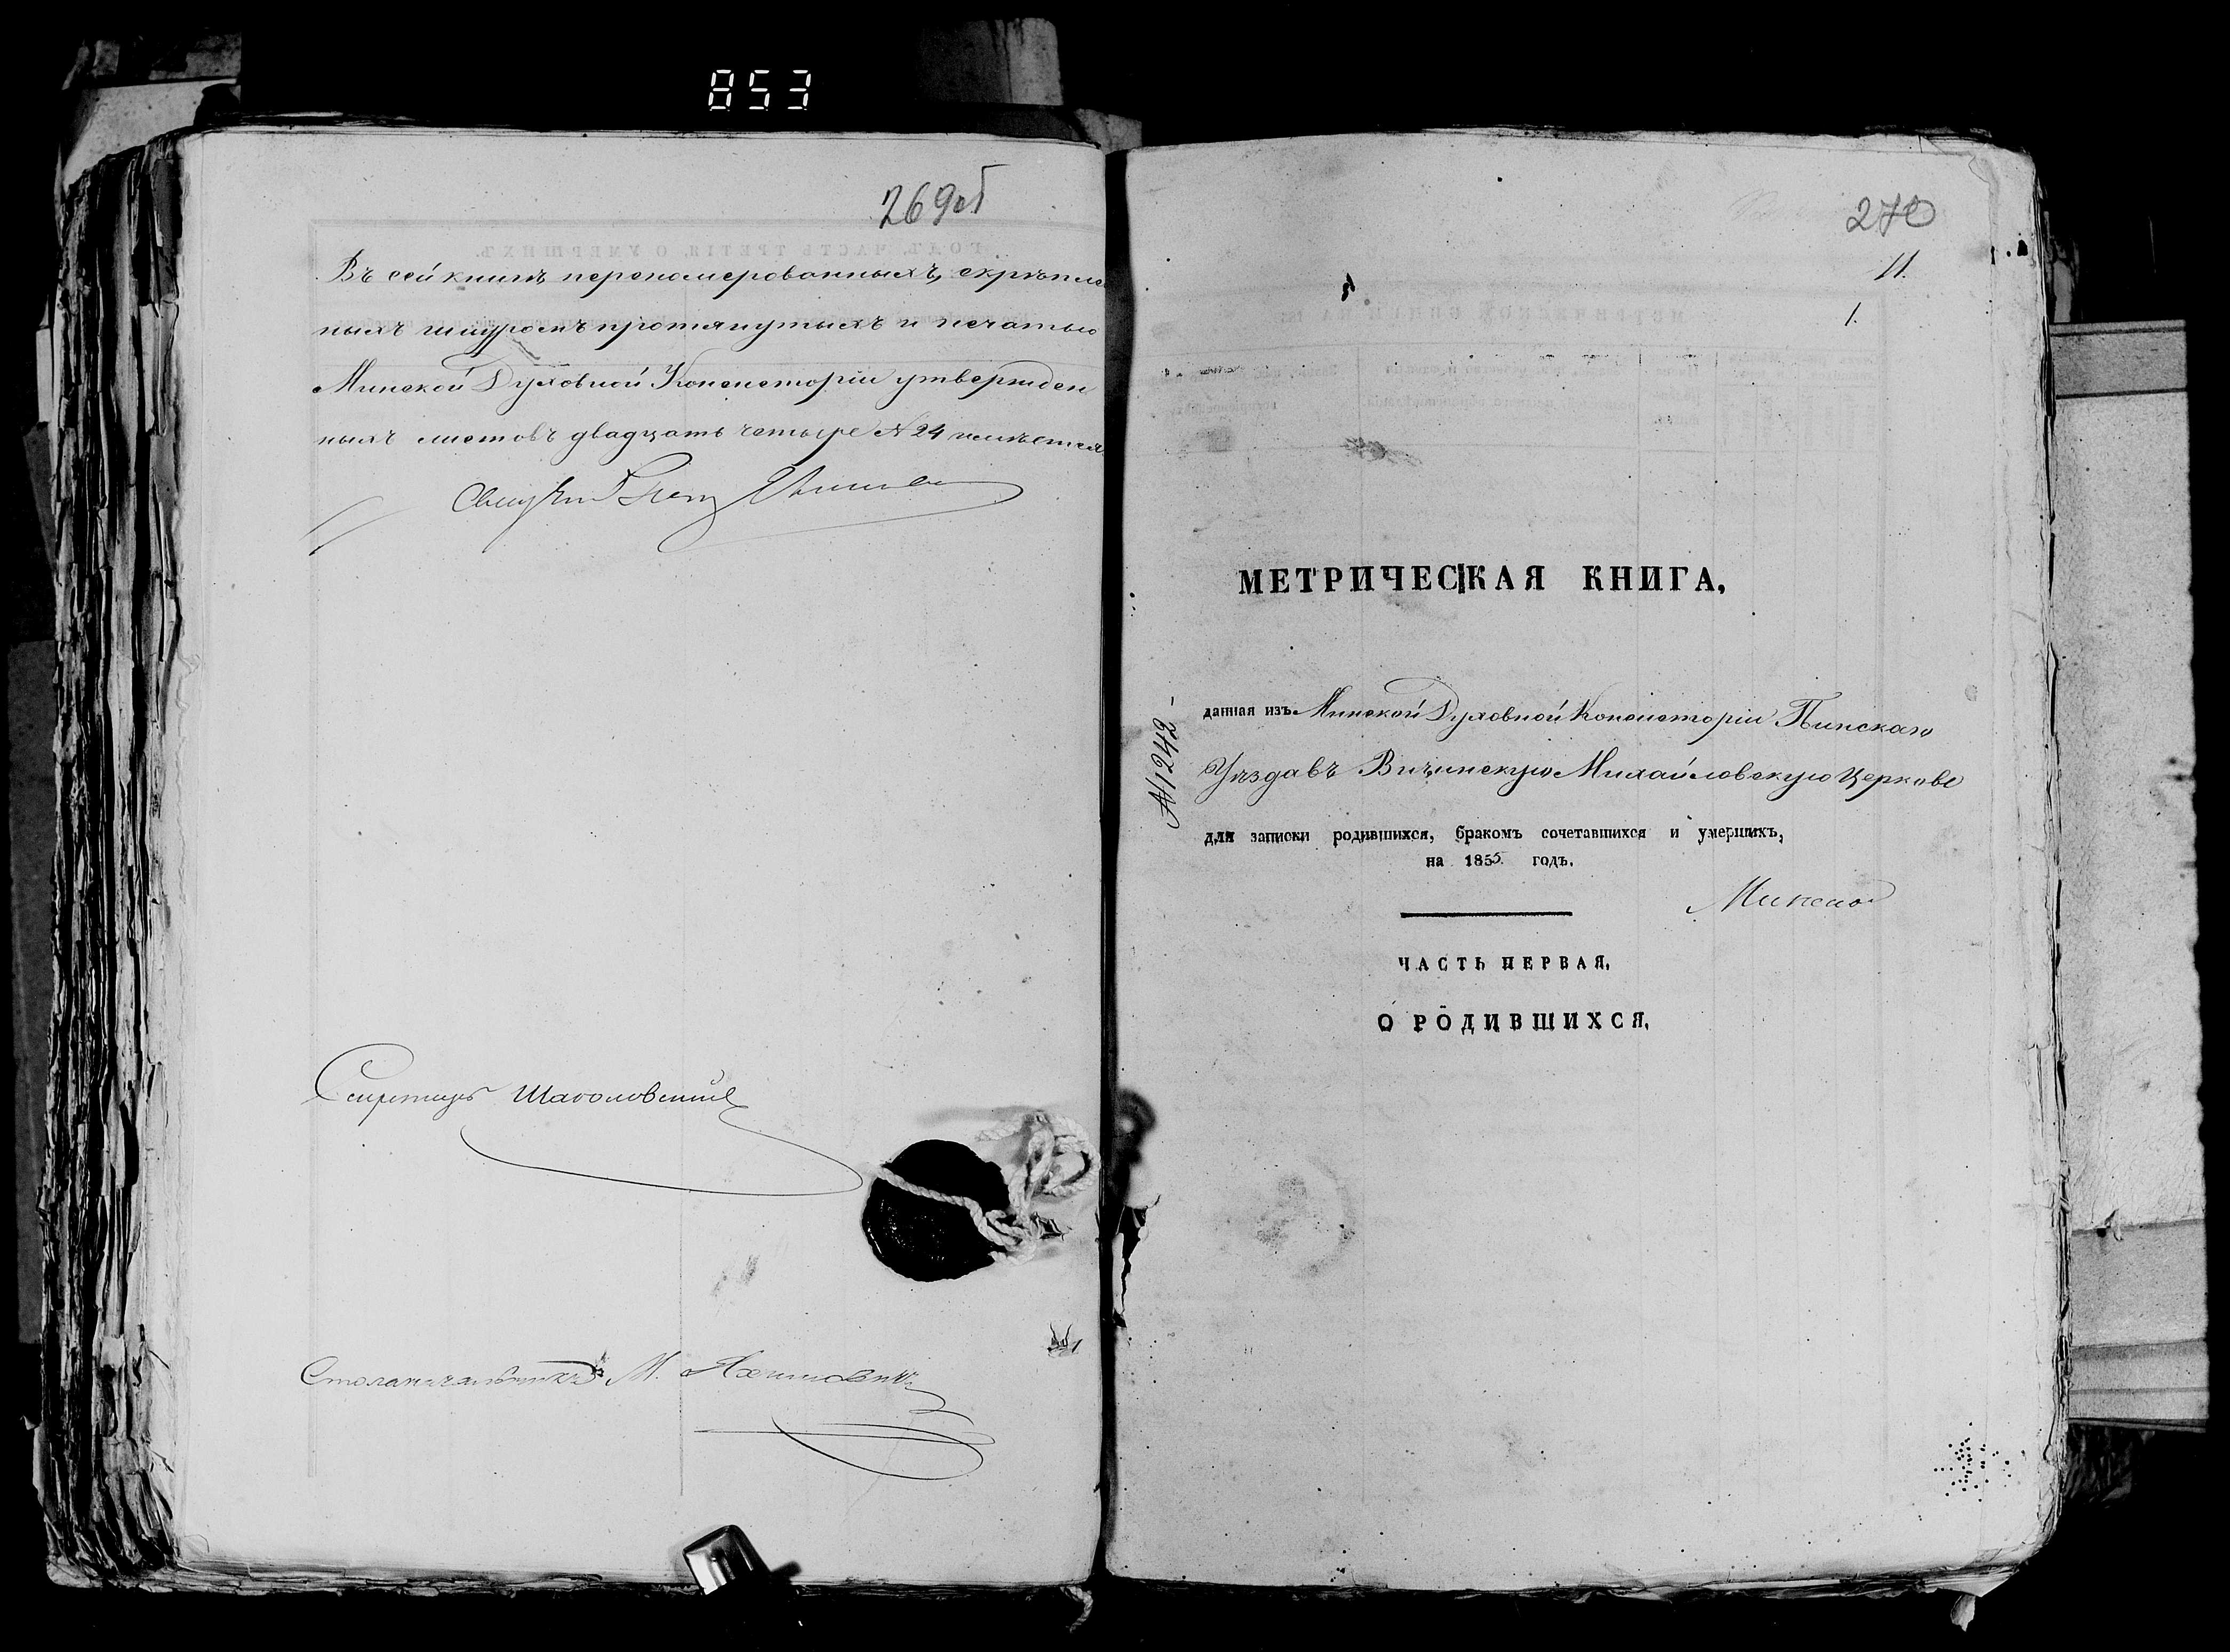 853
269об
Въ сей книгѣ перепомерованныхъ, скрѣплен
ныхъ шнуромъ протянутыхъ и печатью
Минской Духовной Консисторіи утвержден
ныхъ листовъ двадцать четыре № 24 имѣется
Секретарь
Столоначальникъ М.
270
11.
1.
МЕТРИЧЕСКАЯ КНИГА,
№ 1242
данная изъ Минской Духовной Консисторіи Пинскаго
Уѣзда въ Вичинскую Михайловскую Церковь
для записки родившихся, бракомъ сочетавшихся и умершихъ,
на 1855. годъ.
ЧАСТЬ ПЕРВАЯ,
О РОДИВШИХСЯ,